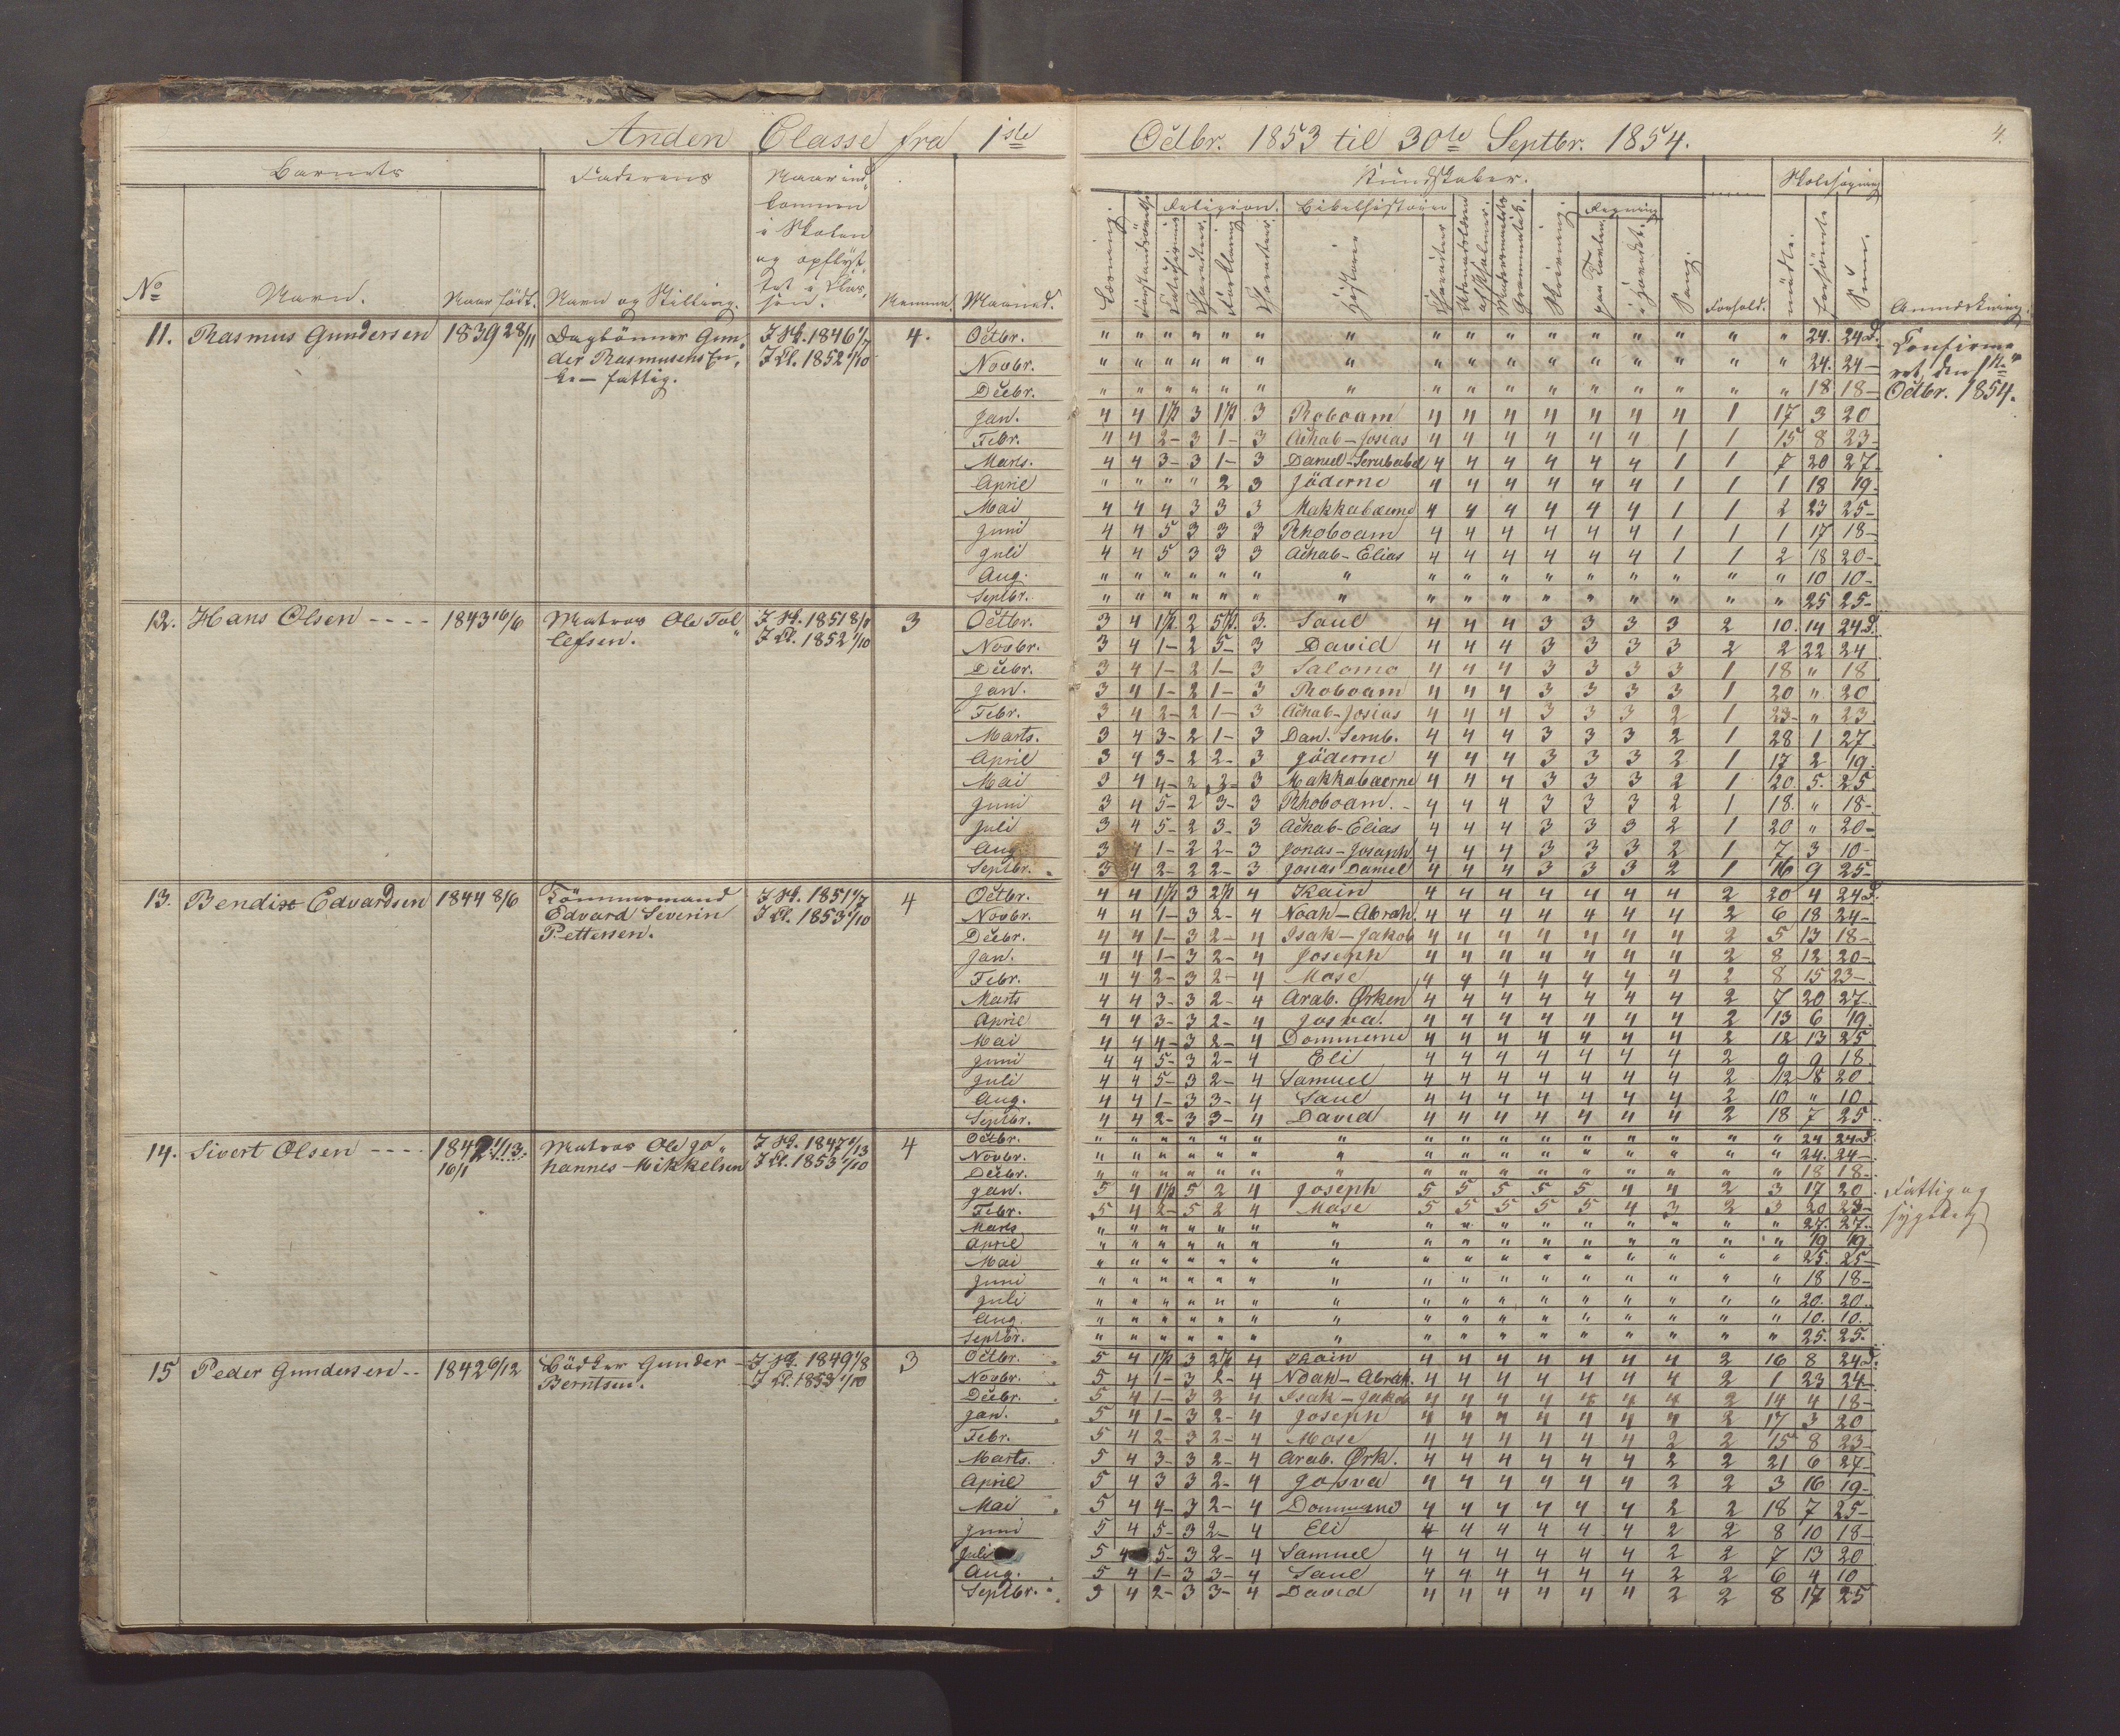 4.
Anden Classe fra 1ste Octbr. 1853 til 30te Septbr. 1854.
Barnets Faderens Naar ind- Kundskaber. Skolesøgning
kommen
i Skolen Religion. Bibelhistorie Regning
og opflyt-
tet i Clas-
No Navn. Naar født. Navn og Stilling. sen. Nummer. Maaned. Læsning. Charakter. Historie Charakter Skrivning. paa Tavlen i Hovedet. Sang. Forhold. mødte. forsømte Sum. Anmærkning.
11. Rasmus Gundersen 1839 28/11 Daglønner Gun- I Sk. 1846 1/7 4. Octbr. " " " " " " " " " " " " " " " " 24. 24 D. Confirme-
der Rasmusens En- I Cl. 1852 1/10 Novbr. " " " " " " " " " " " " " " " " 24. 24 – ret den 1ste
ke – fattig. Decbr. " " " " " " " " " " " " " " " " 18 18 – Octbr. 1854.
Jan. 4 4 1½ 3 1½ 3 Roboam 4 4 4 4 4 4 4 1 17 3 20
Febr. 4 4 2 – 3 1 – 3 Achab – Josias 4 4 4 4 4 4 1 1 15 8 23 –
Marts. 4 4 3 – 3 1 – 3 Daniel – Serubabel 4 4 4 4 4 4 1 1 7 20 27 –
April " " " " 2 3 Jöderne 4 4 4 4 4 4 1 1 1 18 19 –
Mai 4 4 4 3 3 3 Makkabæerne 4 4 4 4 4 4 1 1 2 23 25 –
Juni 4 4 5 3 3 3 Rhoboam 4 4 4 4 4 4 1 1 1 17 18 –
Juli 4 4 5 3 3 3 Achab – Elias 4 4 4 4 4 4 1 1 2 18 20 –
Aug. " " " " " " " " " " " " " " " " 10 10 –
Septbr. " " " " " " " " " " " " " " " " 25 25 –
12. Hans Olsen - - - - 1843 16/6 Matros Ole Tol- I Sk. 1851 8/1 3 Octbr. 3 4 1½ 2 5½ 3. Saul 4 4 4 3 3 3 3 2 10. 14 24 D.
lefsen. I Cl. 1852 1/10 Novbr. 3 4 1 – 2 5 – 3 David 4 4 4 3 3 3 3 2 2 22 24
Decbr. 3 4 1 – 2 1 – 3 Salomo 4 4 4 3 3 3 3 1 18 " 18
Jan. 3 4 1 – 2 1 – 3 Roboam 4 4 4 3 3 3 3 1 20 " 20
Febr. 3 4 2 – 2 1 – 3 Achab – Josias 4 4 4 3 3 3 2 1 23 – " 23
Marts. 3 4 3 – 2 1 – 3 Dan. Serub. 4 4 4 3 3 3 2 1 28 1 27
April 3 4 3 – 2 2 – 3 Jöderne 4 4 4 3 3 3 2 1 17 2 19.
Mai 3 4 4 – 2 2 – 3 Makkabæerne 4 4 4 3 3 3 2 1 20. 5. 25
Juni 3 4 5 – 2 3 – 3 Rhoboam. – 4 4 4 3 3 3 2 1 18. " 18 –
Juli 3 4 5 – 2 3 – 3 Achab – Elias 4 4 4 3 3 3 2 1 20 " 20 –
Aug. 3 4 1 – 2 2 – 3 Jonas – Josaph 4 4 4 3 3 3 2 1 7 3 10 –
Septbr. 3 4 2 – 2 2 – 3 Josias Daniel 4 4 4 3 3 3 2 1 16 9 25 –
13. Bendix Edvardsen 1844 8/6 Tömmermand I Sk. 1851 1/7 4 Octbr. 4 4 1½ 3 2½ 4 Kain 4 4 4 4 4 4 4 2 20 4 24 D.
Edvard Severin I Cl. 1853 1/10 Novbr. 4 4 1 – 3 2 – 4 Noah – Abrah. 4 4 4 4 4 4 4 2 6 18 24 –
Pettersen. Decbr. 4 4 1 – 3 2 – 4 Isak – Jakob 4 4 4 4 4 4 4 2 5 13 18 –
Jan. 4 4 1 – 3 2 – 4 Joseph 4 4 4 4 4 4 4 2 8 12 20 –
Febr. 4 4 2 – 3 2 – 4 Mose 4 4 4 4 4 4 4 2 8 15 23 –
Marts 4 4 3 – 3 2 – 4 Arab. Ørken 4 4 4 4 4 4 4 2 7 20 27 –
April 4 4 3 – 3 2 – 4 Josva. 4 4 4 4 4 4 4 2 13 6 19.
Mai 4 4 4 – 3 2 – 4 Dommerne 4 4 4 4 4 4 4 2 12 13 25
Juni 4 4 5 – 3 2 – 4 Eli 4 4 4 4 4 4 4 2 9 9 18
Juli 4 4 5 – 3 2 – 4 Samuel 4 4 4 4 4 4 4 2 12 8 20
Aug. 4 4 1 – 3 3 – 4 Saul 4 4 4 4 4 4 4 2 10 " 10
Septbr. 4 4 2 – 3 3 – 4 David 4 4 4 4 4 4 4 2 18 7 25
14. Sivert Olsen - - - - 1842 1/13. Matros Ole Jo- I Sk. 1847 1/13 4 Octbr. " " " " " " " " " " " " " " " " 24 24 D.
16/1 hannes Mikkelsen I Cl. 1853 1/10 Novbr. " " " " " " " " " " " " " " " " 24. 24 –
Decbr. " " " " " " " " " " " " " " " " 18 18 –
Jan. 5 4 1½ 5 2 4 Joseph 5 5 5 5 5 4 4 2 3 17 20 Fattig og
Febr. 5 4 2 – 5 2 4 Mose 5 5 5 5 5 4 3 2 3 20 23 – sygelig
Marts " " " " " " " " " " " " " " " " 27. 27.
April " " " " " " " " " " " " " " " " 19 19
Mai " " " " " " " " " " " " " " " " 25. 25 –
Juni " " " " " " " " " " " " " " " " 18 18 –
Juli " " " " " " " " " " " " " " " " 20. 20.
Aug. " " " " " " " " " " " " " " " " 10. 10.
Septbr. " " " " " " " " " " " " " " " " 25. 25.
15 Peder Gundersen - - 1842 6/12 Bödker Gunder I Sk. 1849 1/8 3 Octbr. 5 4 1½ 3 2½ 4 Kain 4 4 4 4 4 4 4 2 16 8 24 D.
Berntsen. I Cl. 1853 1/10 Novbr. 5 4 1 – 3 2 – 4 Noah – Abrah. 4 4 4 4 4 4 4 2 1 23 24 –
Decbr. 5 4 1 – 3 2 4 Isak – Jakob 4 4 4 4 4 4 4 2 14 4 18 –
Jan. 5 4 1 – 3 2 – 4 Joseph 4 4 4 4 4 4 4 2 17 3 20
Febr. 5 4 2 – 3 2 – 4 Mose 4 4 4 4 4 4 2 2 15 8 23
Marts. 5 4 3 – 3 2 – 4 Arab. Ørk. 4 4 4 4 4 4 2 2 21 6 27 –
April 5 4 3 3 2 – 4 Josva 4 4 4 4 4 4 2 2 3 16 19 –
Mai 5 4 4 – 3 2 – 4 Dommerne 4 4 4 4 4 4 2 2 18 7 25 –
Juni 5 4 5 – 3 2 – 4 Eli 4 4 4 4 4 4 2 2 8 10 18 –
Juli 5 4 5 – 3 2 – 4 Samuel 4 4 4 4 4 4 2 2 7 13 20
Aug. 5 4 1 – 3 3 – 4 Saul 4 4 4 4 4 4 2 2 6 4 10
Septbr. 5 4 2 – 3 3 – 4 David 4 4 4 4 4 4 2 2 8 17 25